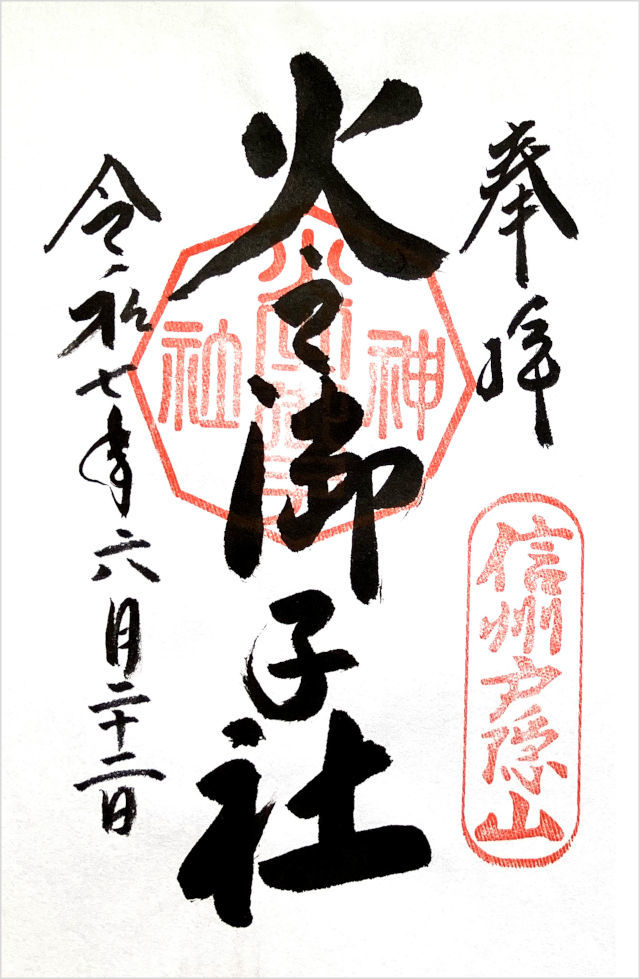 奉拝
信州戸隠山
火之御子社
神
社
令和七年六月二十二日